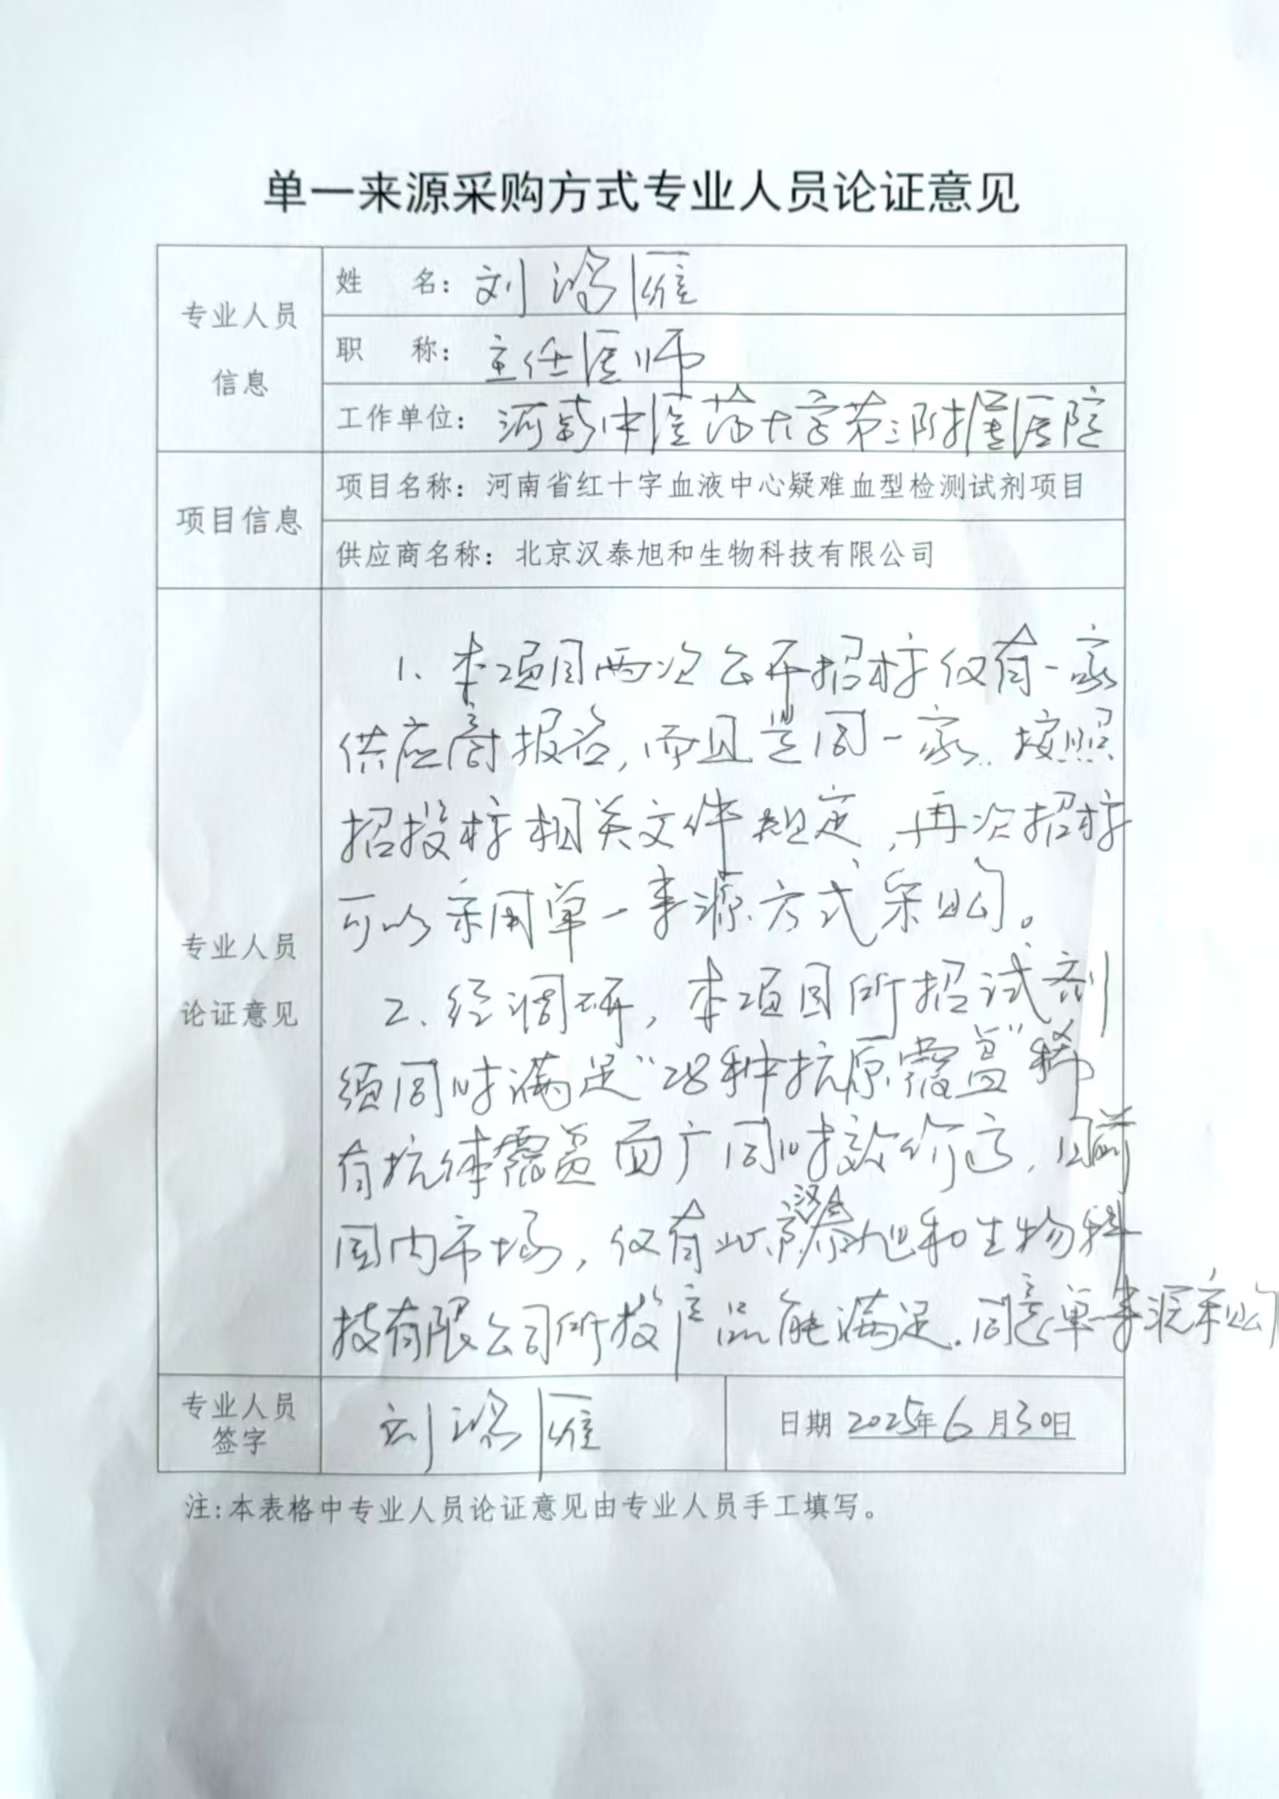 单一来源采购方式专业人员论证意见
专业人员
信息
姓 名：刘鸿雁
职 称：主任医师
工作单位：河南中医药大学第三附属医院
项目信息
项目名称：河南省红十字血液中心疑难血型检测试剂项目
供应商名称：北京汉泰旭和生物科技有限公司
专业人员
论证意见
1、本项目两次公开招标仅有一家
供应商报名，而且是同一家。按照
招投标相关文件规定，再次招标
可以采用单一来源方式采购。
2、经调研，本项目所招试剂
须同时满足“28种抗原覆盖”稀
有抗体覆盖面广同时效价高，目前
国内市场，仅有北京汉泰旭和生物科
技有限公司所投产品能满足。同意单一来源采购
专业人员
签字
刘鸿雁
日期 2025年6月30日
注：本表格中专业人员论证意见由专业人员手工填写。